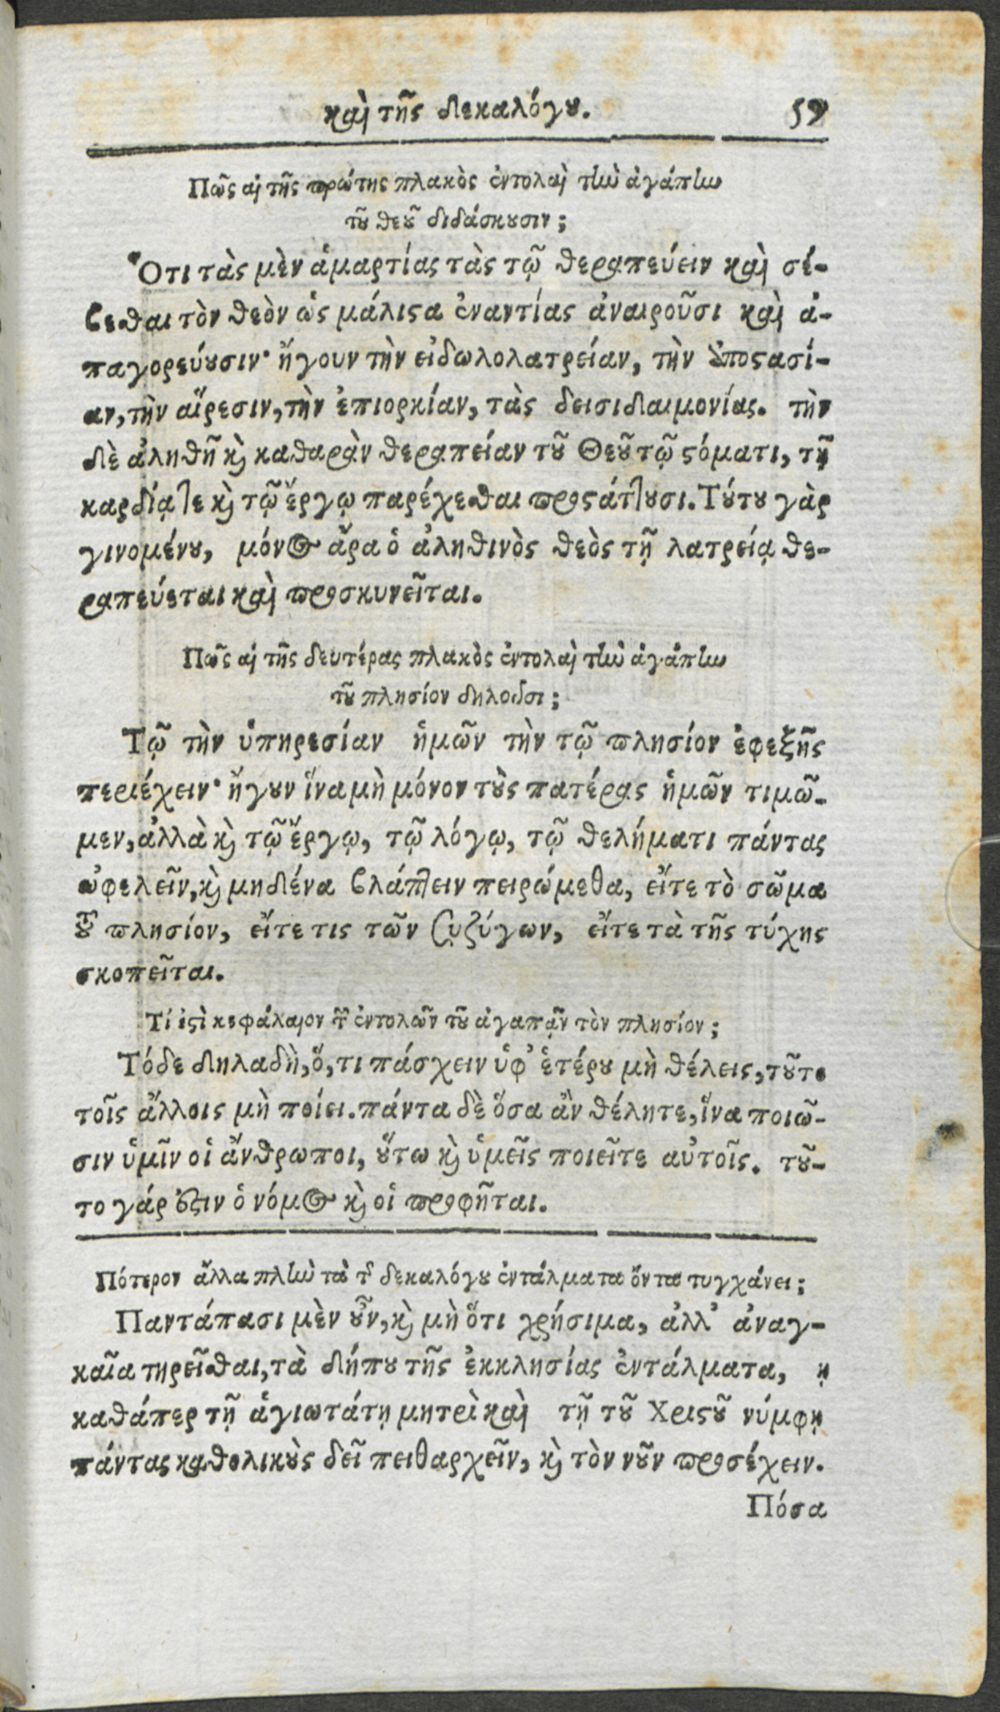 καὶ τῆς δεκαλόγου. 59
Πῶς αἱ τῆς πρώτης πλακὸς ἐντολαὶ τὴν ἀγάπην
τοῦ θεοῦ διδάσκουσιν;
Ὅτι τὰς μὲν ἁμαρτίας τὰς τῷ θεραπεύειν καὶ σέ-
βεσθαι τὸν θεὸν ὡς μάλιστα ἐναντίας ἀναιροῦσι καὶ ἀ-
παγορεύουσιν· ἤγουν τὴν εἰδωλολατρείαν, τὴν ἀποστασί-
αν, τὴν αἵρεσιν, τὴν ἐπιορκίαν, τὰς δεισιδαιμονίας. τὴν
δὲ ἀληθῆ καὶ καθαρὰν θεραπείαν τοῦ Θεοῦ τῷ στόματι, τῇ
καρδίᾳ τε καὶ τῷ ἔργῳ παρέχεσθαι προστάττουσι. Τούτου γὰρ
γινομένου, μόνος ἄρα ὁ ἀληθινὸς θεὸς τῇ λατρείᾳ θε-
ραπεύεται καὶ προσκυνεῖται.
Πῶς αἱ τῆς δευτέρας πλακὸς ἐντολαὶ τὴν ἀγάπην
τοῦ πλησίον δηλοῦσι;
Τῷ τὴν ὑπηρεσίαν ἡμῶν τὴν τῷ πλησίον ἐφεξῆς
περιέχειν· ἤγουν ἵνα μὴ μόνον τοὺς πατέρας ἡμῶν τιμῶ-
μεν, ἀλλὰ καὶ τῷ ἔργῳ, τῷ λόγῳ, τῷ θελήματι πάντας
ὠφελεῖν, καὶ μηδένα βλάπτειν πειρώμεθα, εἴτε τὸ σῶμα
τοῦ πλησίον, εἴτε τις τῶν συζύγων, εἴτε τὰ τῆς τύχης
σκοπεῖται.
Τί ἐστὶ κεφάλαιον τῶν ἐντολῶν τοῦ ἀγαπᾷν τὸν πλησίον;
Τόδε δηλαδὴ, ὅ, τι πάσχειν ὑφ' ἑτέρου μὴ θέλεις, τοῦτο
τοῖς ἄλλοις μὴ ποίει. πάντα δὲ ὅσα ἂν θέλητε, ἵνα ποιῶ-
σιν ὑμῖν οἱ ἄνθρωποι, οὕτω καὶ ὑμεῖς ποιεῖτε αὐτοῖς. τοῦ-
το γάρ ἐστιν ὁ νόμος καὶ οἱ προφῆται.
Πότερον ἄλλα πλὴν τὰ τῆς δεκαλόγου ἐντάλματα ὄντα τυγχάνει;
Παντάπασι μὲν οὖν, καὶ μὴ ὅτι χρήσιμα, ἀλλ' ἀναγ-
καῖα τηρεῖσθαι, τὰ δήπου τῆς ἐκκλησίας ἐντάλματα, ᾗ
καθάπερ τῇ ἁγιωτάτῃ μητρὶ καὶ τῇ τοῦ Χριστοῦ νύμφῃ
πάντας καθολικοὺς δεῖ πειθαρχεῖν, καὶ τὸν νοῦν προσέχειν.
Πόσα